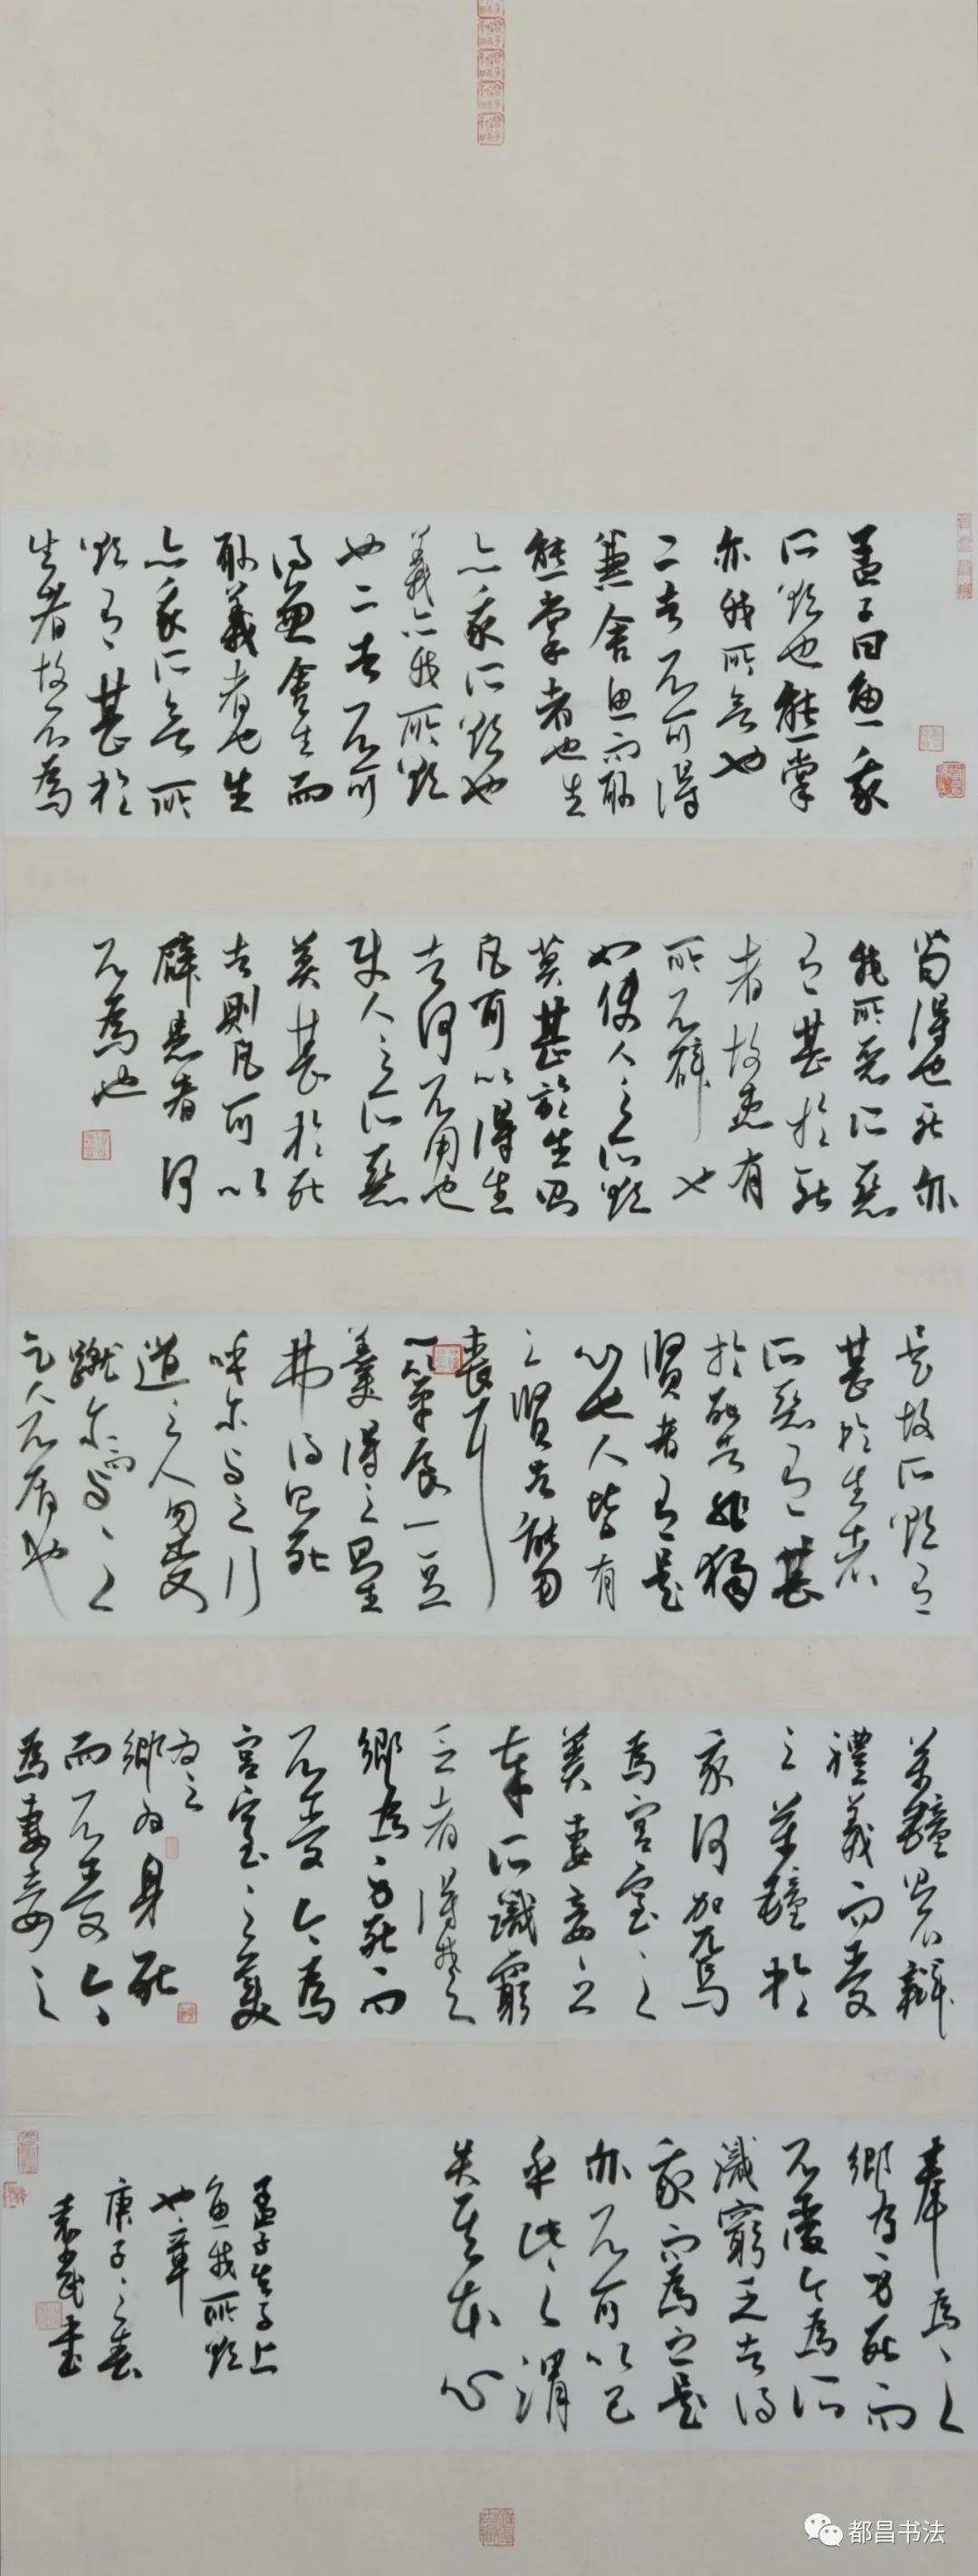 孟子曰魚我
所欲也熊掌
亦我所欲也
二者不可得
兼舍魚而取
熊掌者也生
亦我所欲也
義亦我所欲
也二者不可
得兼舍生而
取義者也生
亦我所欲所
欲有甚於
生者故不為
苟得也死亦
我所惡所惡
有甚於死
者故患有
所不辟也
如使人之所欲
莫甚於生則
凡可以得生
者何不用也
使人之所惡
莫甚於死
者則凡可以
辟患者何
不為也
是故所欲有
甚於生者
所惡有甚
於死者非獨
賢者有是
心也人皆有
之賢者能勿
喪耳
一簞食一豆
羹得之則生
弗得則死
呼爾與之行
道之人勿受
蹴爾而與之
乞人不屑也
萬鍾則不辯
禮義而受
之萬鍾於
我何加焉
為宮室之
美妻妾之
奉所識窮
乏者得我與
鄉為身死而
不受今為
宮室之美
為之
鄉為身死
而不受今
為妻妾之
奉為之
鄉為身死而
不受今為所
識窮乏者得
我而為之是
亦不可以已
乎此之謂
失其本心
孟子告子上
魚我所欲
也章
庚子之春
書
都昌书法